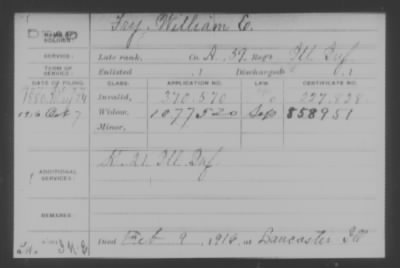 DEAD
NAME OF SOLDIER: Fry, William E.
SERVICE: Late rank, Co. A, 39, Reg't Ill. Inf.
TERM OF SERVICE: Enlisted , 1 Discharged , 1
DATE OF FILING. CLASS. APPLICATION NO. LAW. CERTIFICATE NO.
1880 May 24 Invalid, 370.570 227.838
1916 Oct 7 Widow, 1077520 Sep 858951
Minor,
ADDITIONAL SERVICES: K. 21 Ill. Inf.
REMARKS:
Died Feb 9, 1916, at Lancaster Ill